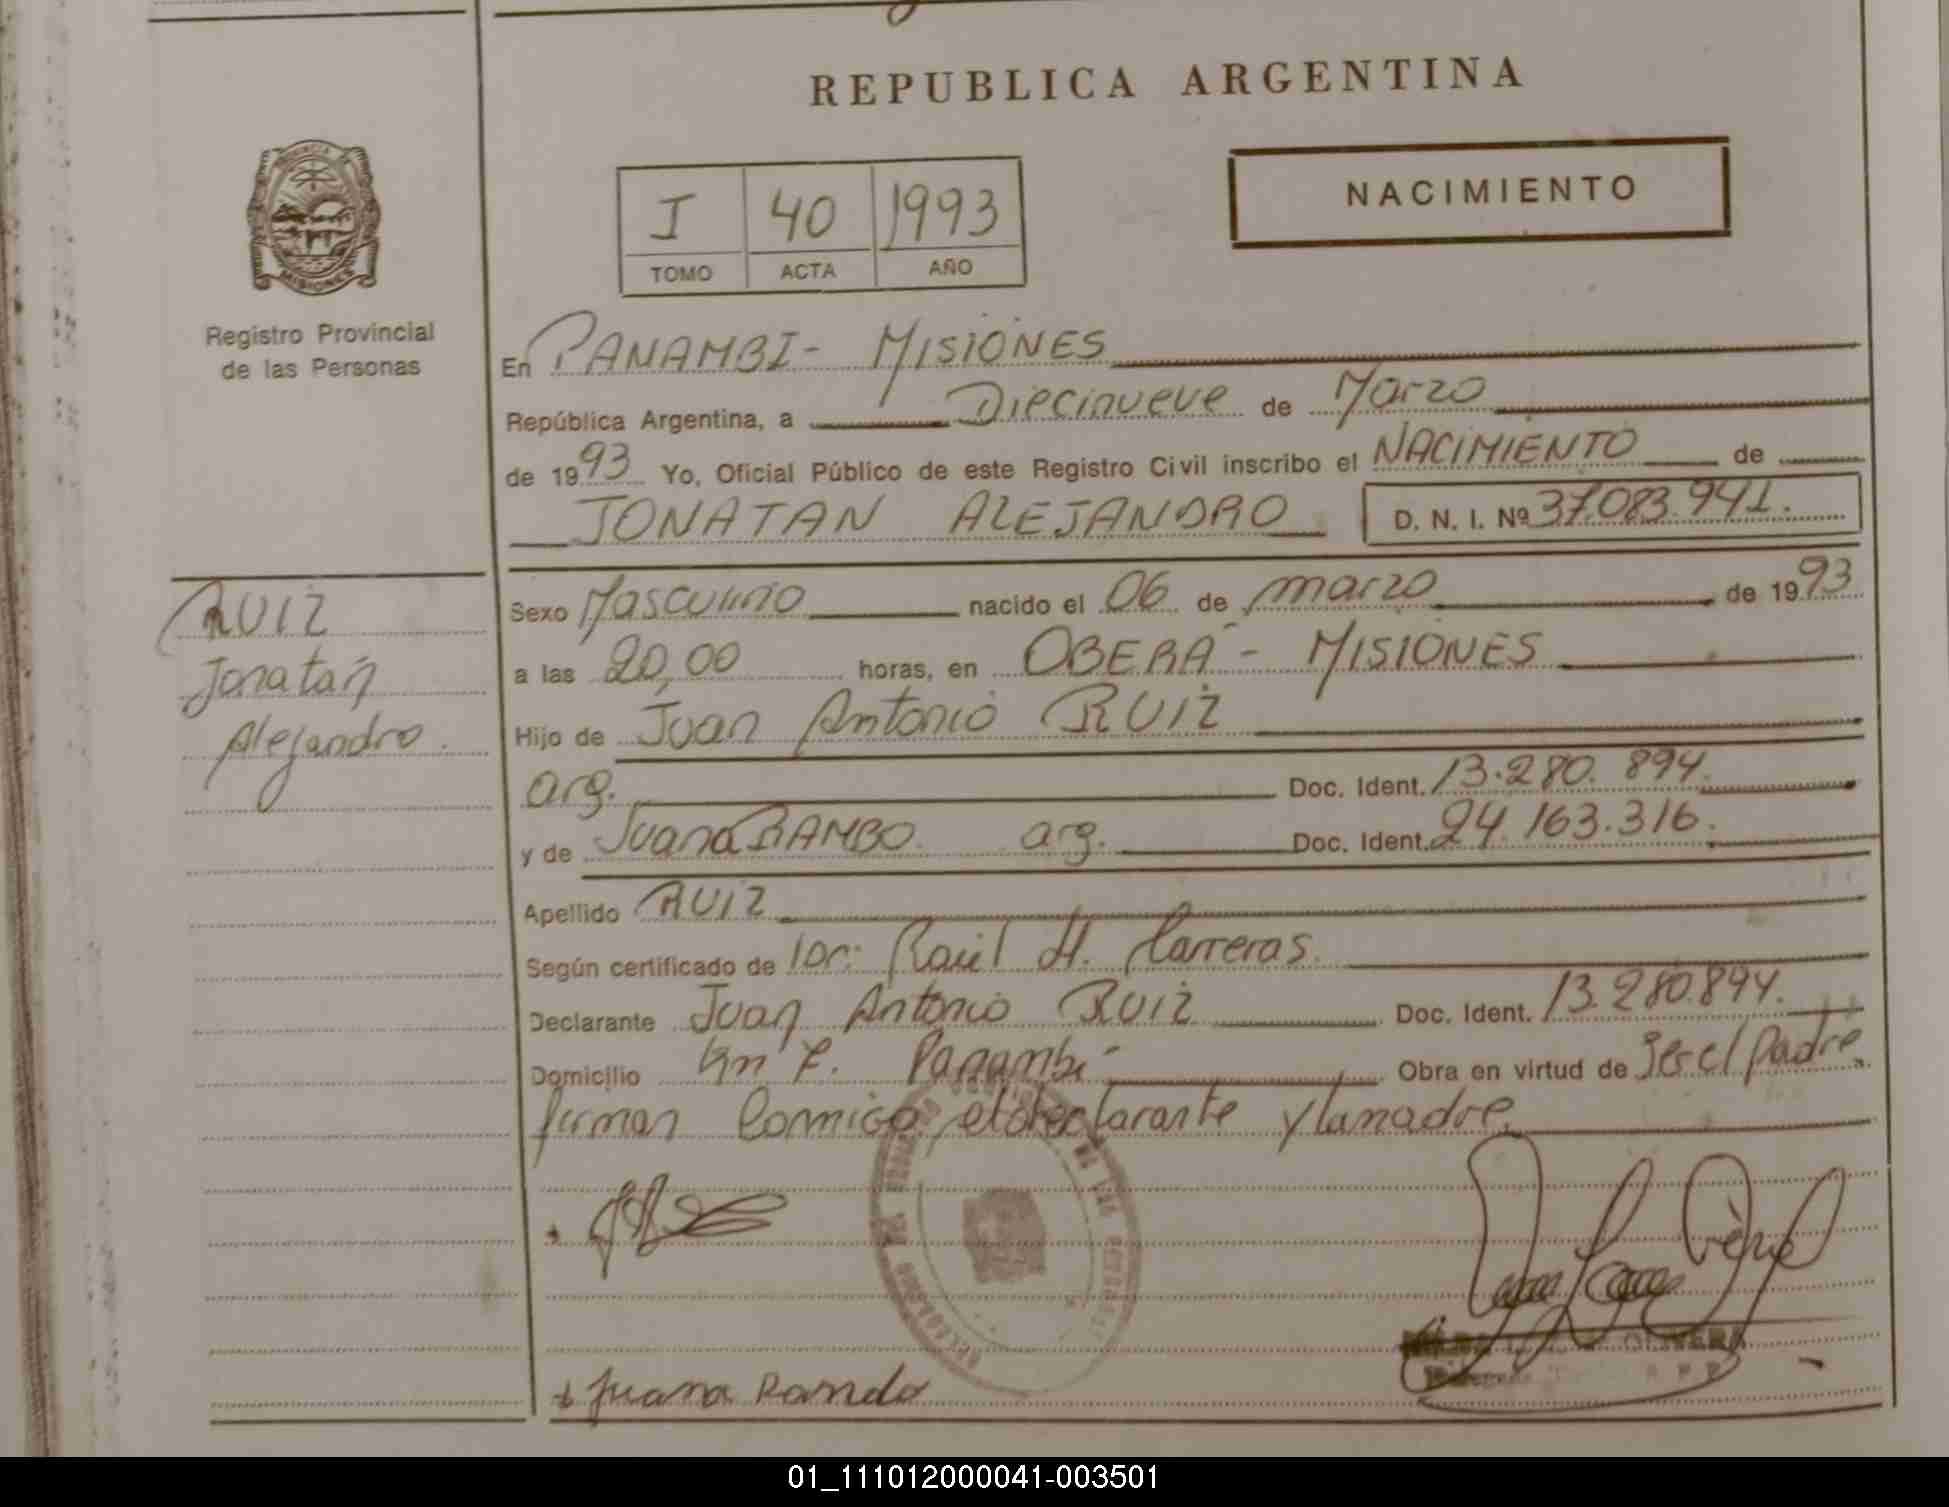 REPUBLICA ARGENTINA
NACIMIENTO
I 40 1993
TOMO ACTA AÑO
PROVINCIA DE
MISIONES
Registro Provincial
de las Personas
En PANAMBI - MISIONES
República Argentina, a Diecinueve de Marzo
de 1993 Yo, Oficial Público de este Registro Civil inscribo el NACIMIENTO de
JONATAN ALEJANDRO D. N. I. Nº 37.083.941.
RUIZ
Jonatan
Alejandro.
Sexo Masculino nacido el 06 de marzo de 1993
a las 20,00 horas, en OBERA - MISIONES
Hijo de Juan Antonio RUIZ
arg. Doc. Ident. 13.280.894.
y de Juana RAMBO. arg. Doc. Ident. 24.163.316.
Apellido RUIZ
Según certificado de Raúl H. Carreras.
Declarante Juan Antonio RUIZ Doc. Ident. 13.280.894.
Domicilio Km Panambi Obra en virtud de Ser el padre
firman Conmigo, el declarante y la madre.
Juana
OLIVERA
01_111012000041-003501